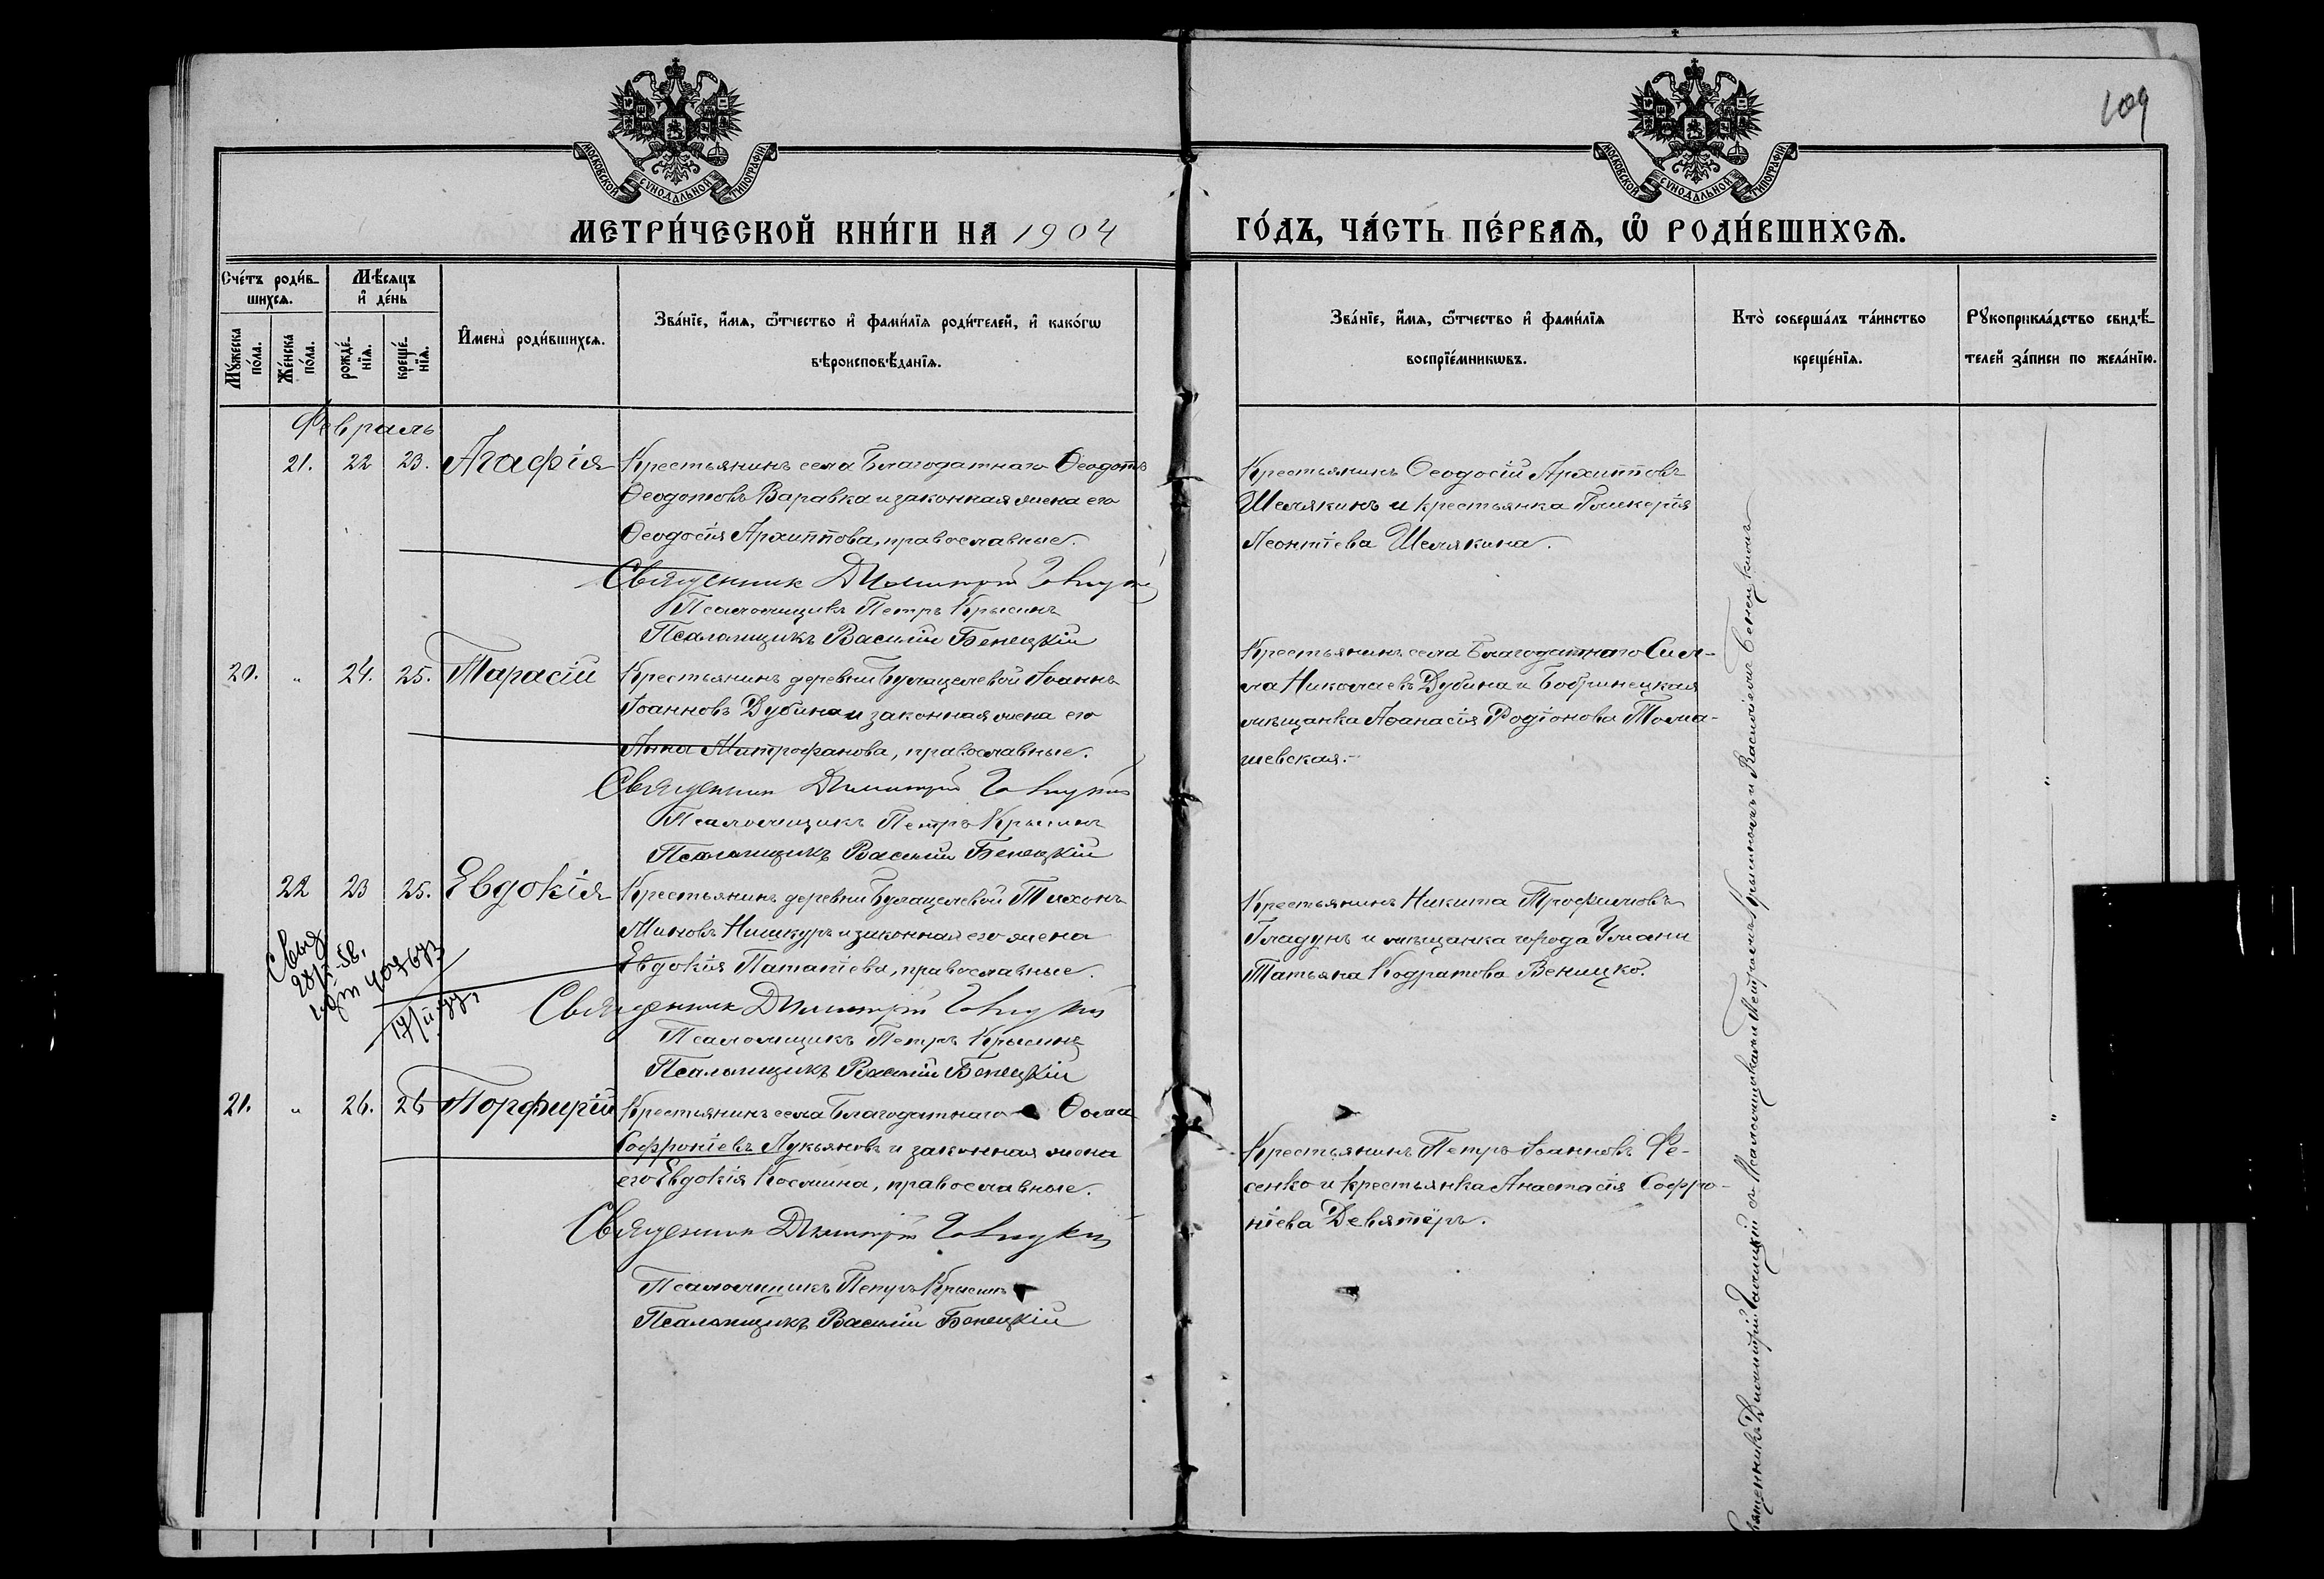 109
МОСКОВСКОЙ СѴНОДАЛЬНОЙ ТИПОГРАФІИ
МОСКОВСКОЙ СѴНОДАЛЬНОЙ ТИПОГРАФІИ
МЕТРИ́ЧЕСКОЙ КНИ́ГИ НА 1904
ГО́ДЪ, ЧА́СТЬ ПЕ́РВАѦ, Ѡ҆ РОДИ́ВШИХСѦ.
Сче́тъ роди́в-
шихсѧ.
Мꙋ́жеска по́ла.
Же́нска по́ла.
Мѣ́сяцъ
и҆ де́нь
рожде́-
нїѧ.
креще́-
нїѧ.
И҆мена̀ роди́вшихсѧ.
Зва́нїе, и҆́мѧ, ѻ҆́тчество и҆ фами́лїѧ роди́телей, и҆ како́гѡ
вѣроисповѣ́данїѧ.
Зва́нїе, и҆́мѧ, ѻ҆́тчество и҆ фами́лїѧ
воспрїе́мникѡвъ.
Кто̀ соверша́лъ та́инство
креще́нїѧ.
Рꙋкоприкла́дство свидѣ́-
телей за́писи по жела́нїю.
Февраль
21. 22 23. Агафія
Крестьянинъ села Благодатнаго Ѳеодотъ
Ѳеодотовъ Варавка и законная жена его
Ѳеодосія Архиппова, православные.
Священник Димитрій
Псаломщикъ Петръ Крысинъ
Псаломщикъ Василій Бенецкій
Крестьянинъ Ѳеодосій Архипповъ
Шелякинъ и крестьянка Гликерія
Леонтіева Шелякина.
20. " 24. 25. Тарасій
Крестьянинъ деревни Булацелевой Іоаннъ
Іоанновъ Дубина и законная жена его
Анна Митрофанова, православные.
Священник Димитрій
Псаломщикъ Петръ Крысинъ
Псаломщикъ Василій Бенецкій
Крестьянинъ села Благодатнаго Сил-
ла Николаевъ Дубина и Бобринецкая
мѣщанка Аѳанасія Родіонова Тома-
шевская.
22 23 25. Евдокія
Крестьянинъ деревни Булацелевой Тихонъ
Миновъ Нишкуръ и законная его жена
Евдокія Патапіева, православные.
Священник Димитрій
Псаломщикъ Петръ Крысинъ
Псаломщикъ Василій Бенецкій
Крестьянинъ Никита Трофимовъ
Гладунъ и мѣщанка города Умани
Татьяна Кодратова Веницко.
21. " 26. 26 Порфирій
Крестьянинъ села Благодатнаго Ѳома
Софроніевъ Лукьяновъ и законная жена
его Евдокія Космина, православные.
Священник Димитрій
Псаломщикъ Петръ Крысинъ
Псаломщикъ Василій Бенецкій
Крестьянинъ Петръ Іоанновъ Фе-
сенко и крестьянка Анастасія Софро-
ніева Девятёръ.
Священникъ Димитрій Голицкій съ Псаломщиками Петромъ Крысинымъ и Василіемъ Бенецкимъ
"
"